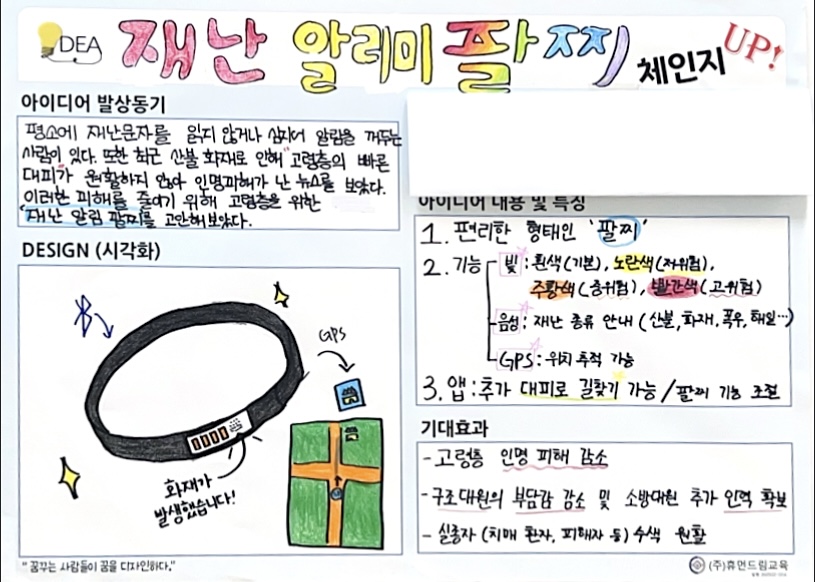 IDEA
재난 알리미 팔찌
체인지 UP!
아이디어 발상동기
평소에 재난문자를 읽지 않거나 심지어 알림을 꺼두는
사람이 있다. 또한 최근 산불 화재로 인해 고령층의 빠른
대피가 원활하지 않아 인명피해가 난 뉴스를 보았다.
이러한 피해를 줄이기 위해 고령층을 위한
'재난 알림 팔찌'를 고안해보았다.
DESIGN (시각화)
GPS
화재가
발생했습니다!
아이디어 내용 및 특징
1. 편리한 형태인 '팔찌'
2. 기능 빛 : 흰색(기본), 노란색(저위험),
주황색(중위험), 빨간색(고위험)
음성 : 재난 종류 안내 (산불, 화재, 폭우, 해일…)
GPS : 위치 추적 가능
3. 앱 : 추가 대피로 길찾기 가능 / 팔찌 기능 조절
기대효과
- 고령층 인명 피해 감소
- 구조대원의 부담감 감소 및 소방대원 추가 인력 확보
- 실종자 (치매 환자, 피해자 등) 수색 원활
"꿈꾸는 사람들이 꿈을 디자인하다."
(주)휴먼드림교육